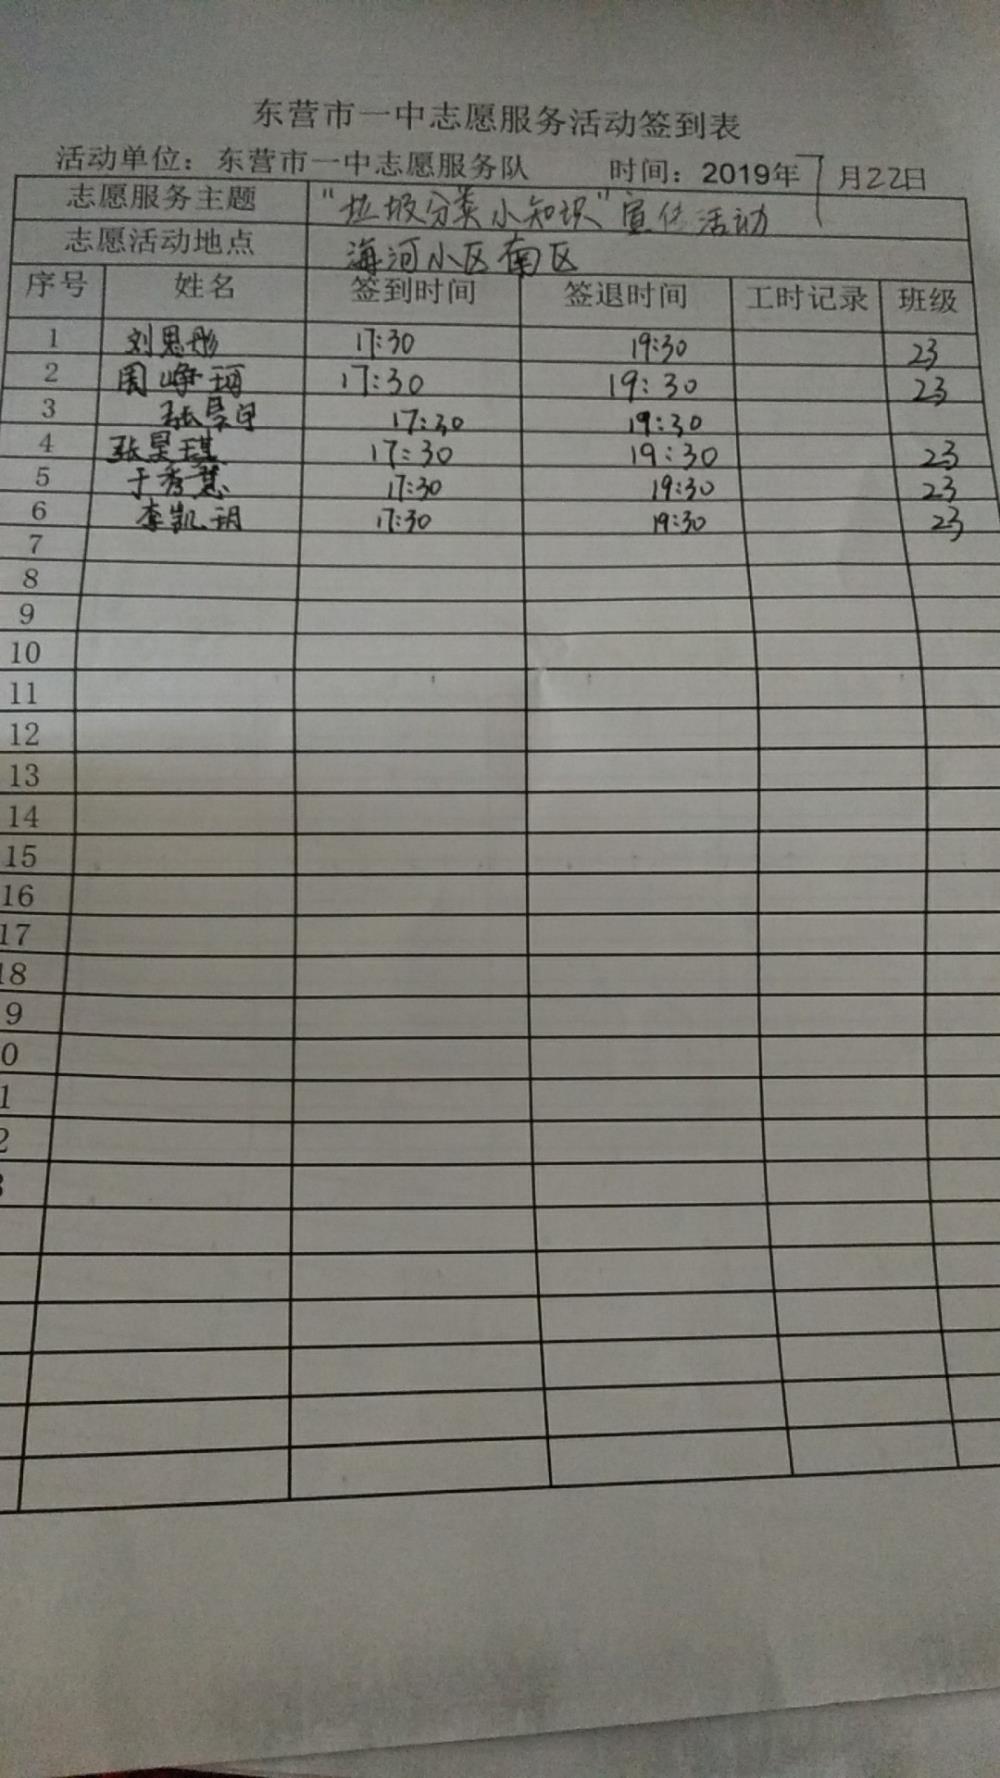 东营市一中志愿服务活动签到表
活动单位：东营市一中志愿服务队 时间：2019年7月22日
志愿服务主题 "垃圾分类小知识"宣传活动
志愿活动地点 海河小区南区
序号 姓名 签到时间 签退时间 工时记录 班级
1 刘思彤 17:30 19:30 23
2 周峥珂 17:30 19:30 23
3 张昊 17:30 19:30
4 张昊琪 17:30 19:30 23
5 于秀慧 17:30 19:30 23
6 李凯玥 17:30 19:30 23
7
8
9
10
11
12
13
14
15
16
17
18
9
0
1
2
3